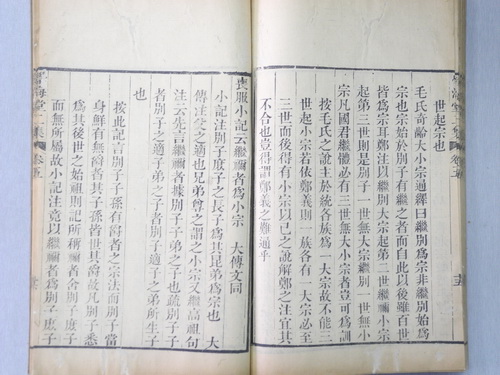 世起宗也
毛氏奇齡大小宗通繹曰繼別為宗非繼別始為
宗也宗始於別子有繼之者而自此以後雖百世
皆為宗耳鄭注則以繼別大宗起第二世繼禰小宗
起第三世則是別子一世無大宗繼別一世無小
宗凡國君繼體必有三世無大小宗者豈可為訓
按毛氏之說主於統各族為一大宗故不能三
宗若依鄭義則一族各有一大宗必至
三世而後得有小宗以已之說解鄭之注宜其
不合也豈得謂鄭義之難通乎
喪服小記云繼禰者為小宗 大傳文同
小記注別子庶子之長子為其昆弟為宗也 大
傳注父之適也兄弟尊之謂之小宗又繼高祖句
注云先言繼禰者據別子子弟之子也疏別子子
者別子適子弟之子者別子適子之弟所生子
也
按此記言別子子孫有爵者之宗法而別子當
身鮮有無爵者其子孫皆世其爵故凡別子悉
為其後世之始祖則記所稱繼禰者舍別子庶子
而無所屬故小記注竟以繼禰者為別子庶子
學海堂二集 卷五